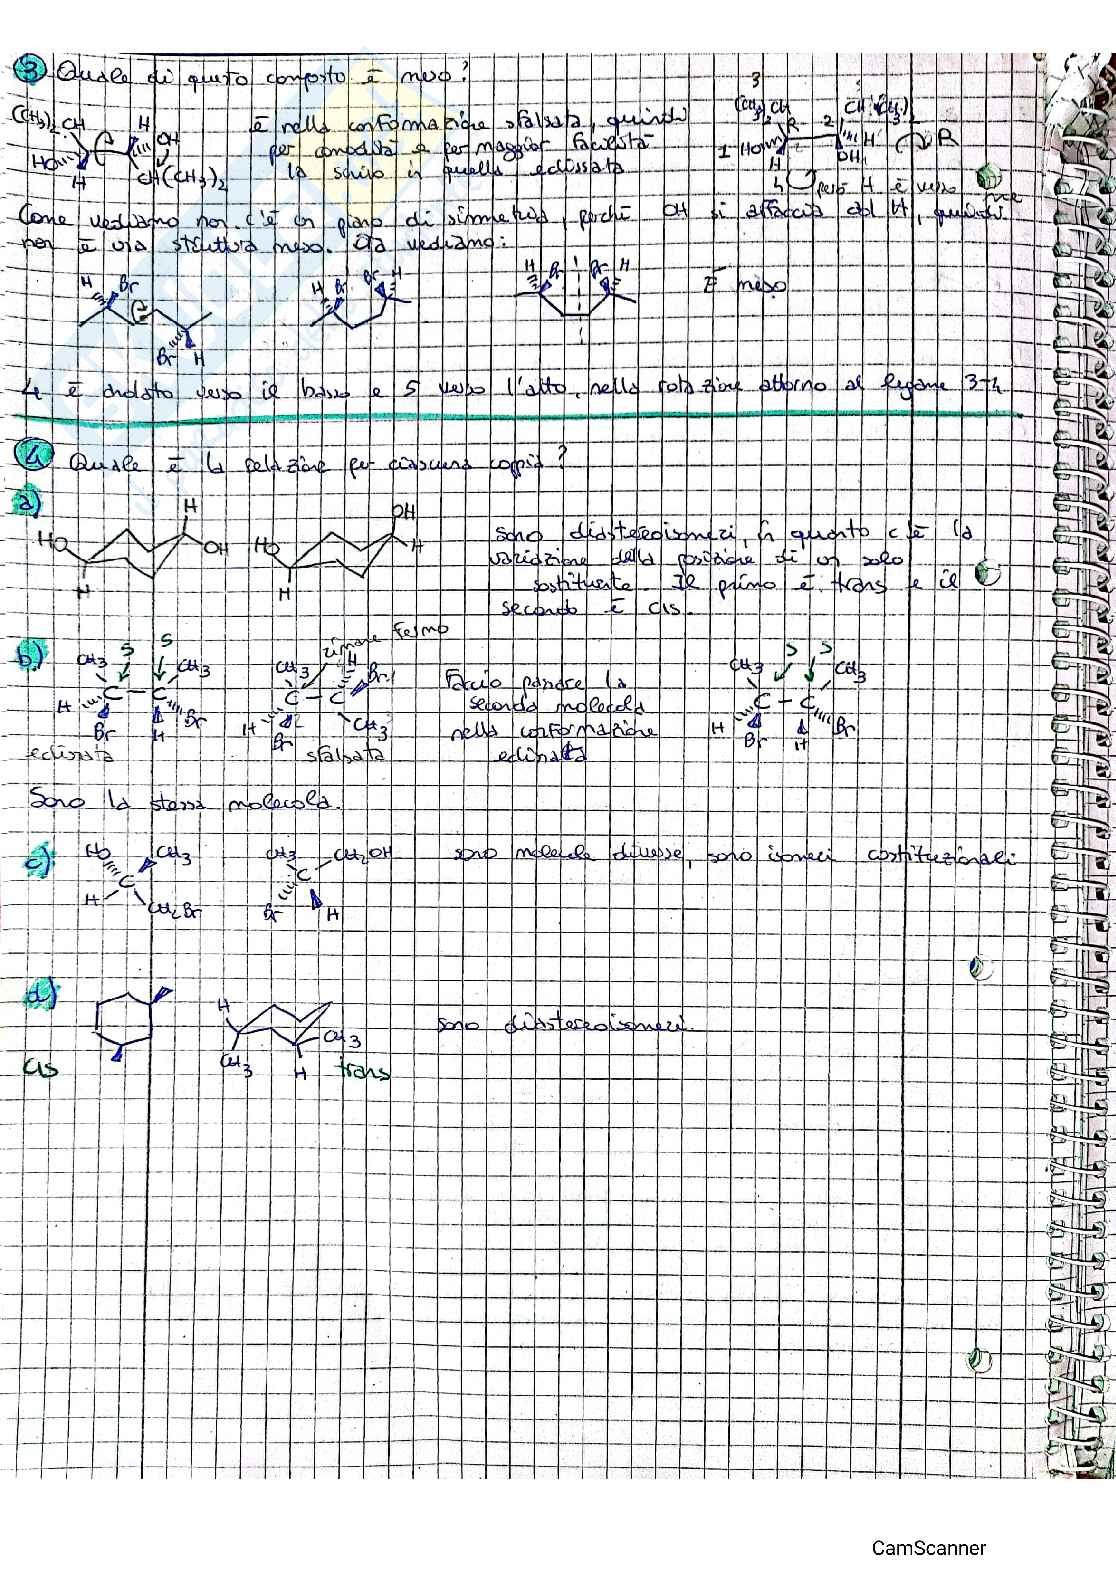 3 Quale di questo composto è meso?
(CH3)2CH H OH HO H CH(CH3)2
È nella conformazione sfalsata, quindi
per comodità e per maggior facilità
la scrivo in quella eclissata
3
(CH3)2CH R 2 CH(CH3)2
1 HO H OH R
H
4 però H è verso
Come vediamo non c'è un piano di simmetria, perché OH si affaccia al H, quindi
non è una struttura meso. Ora vediamo:
H Br H Br Br H H Br Br H È meso
Br H
4 è andato verso il basso e 5 verso l'alto, nella rotazione attorno al legame 3-4
4 Quale è la relazione per ciascuna coppia?
a)
H OH
HO OH HO H
H H
sono diastereoisomeri, in quanto c'è la
variazione della posizione di un solo
sostituente. Il primo è trans e il
secondo è cis.
b)
S S rimane fermo S S
CH3 CH3 CH3 H Br CH3 CH3
C C C C C C
H Br H Br H Br CH3 H Br H Br
Faccio passare la
seconda molecola
nella conformazione
eclissata
eclissata sfalsata
Sono la stessa molecola.
c)
HO CH3 CH3 CH2OH sono molecole diverse, sono isomeri costituzionali
C C
H CH2Br Br H
d)
H sono diastereoisomeri.
CH3
CH3 H
cis trans
CamScanner